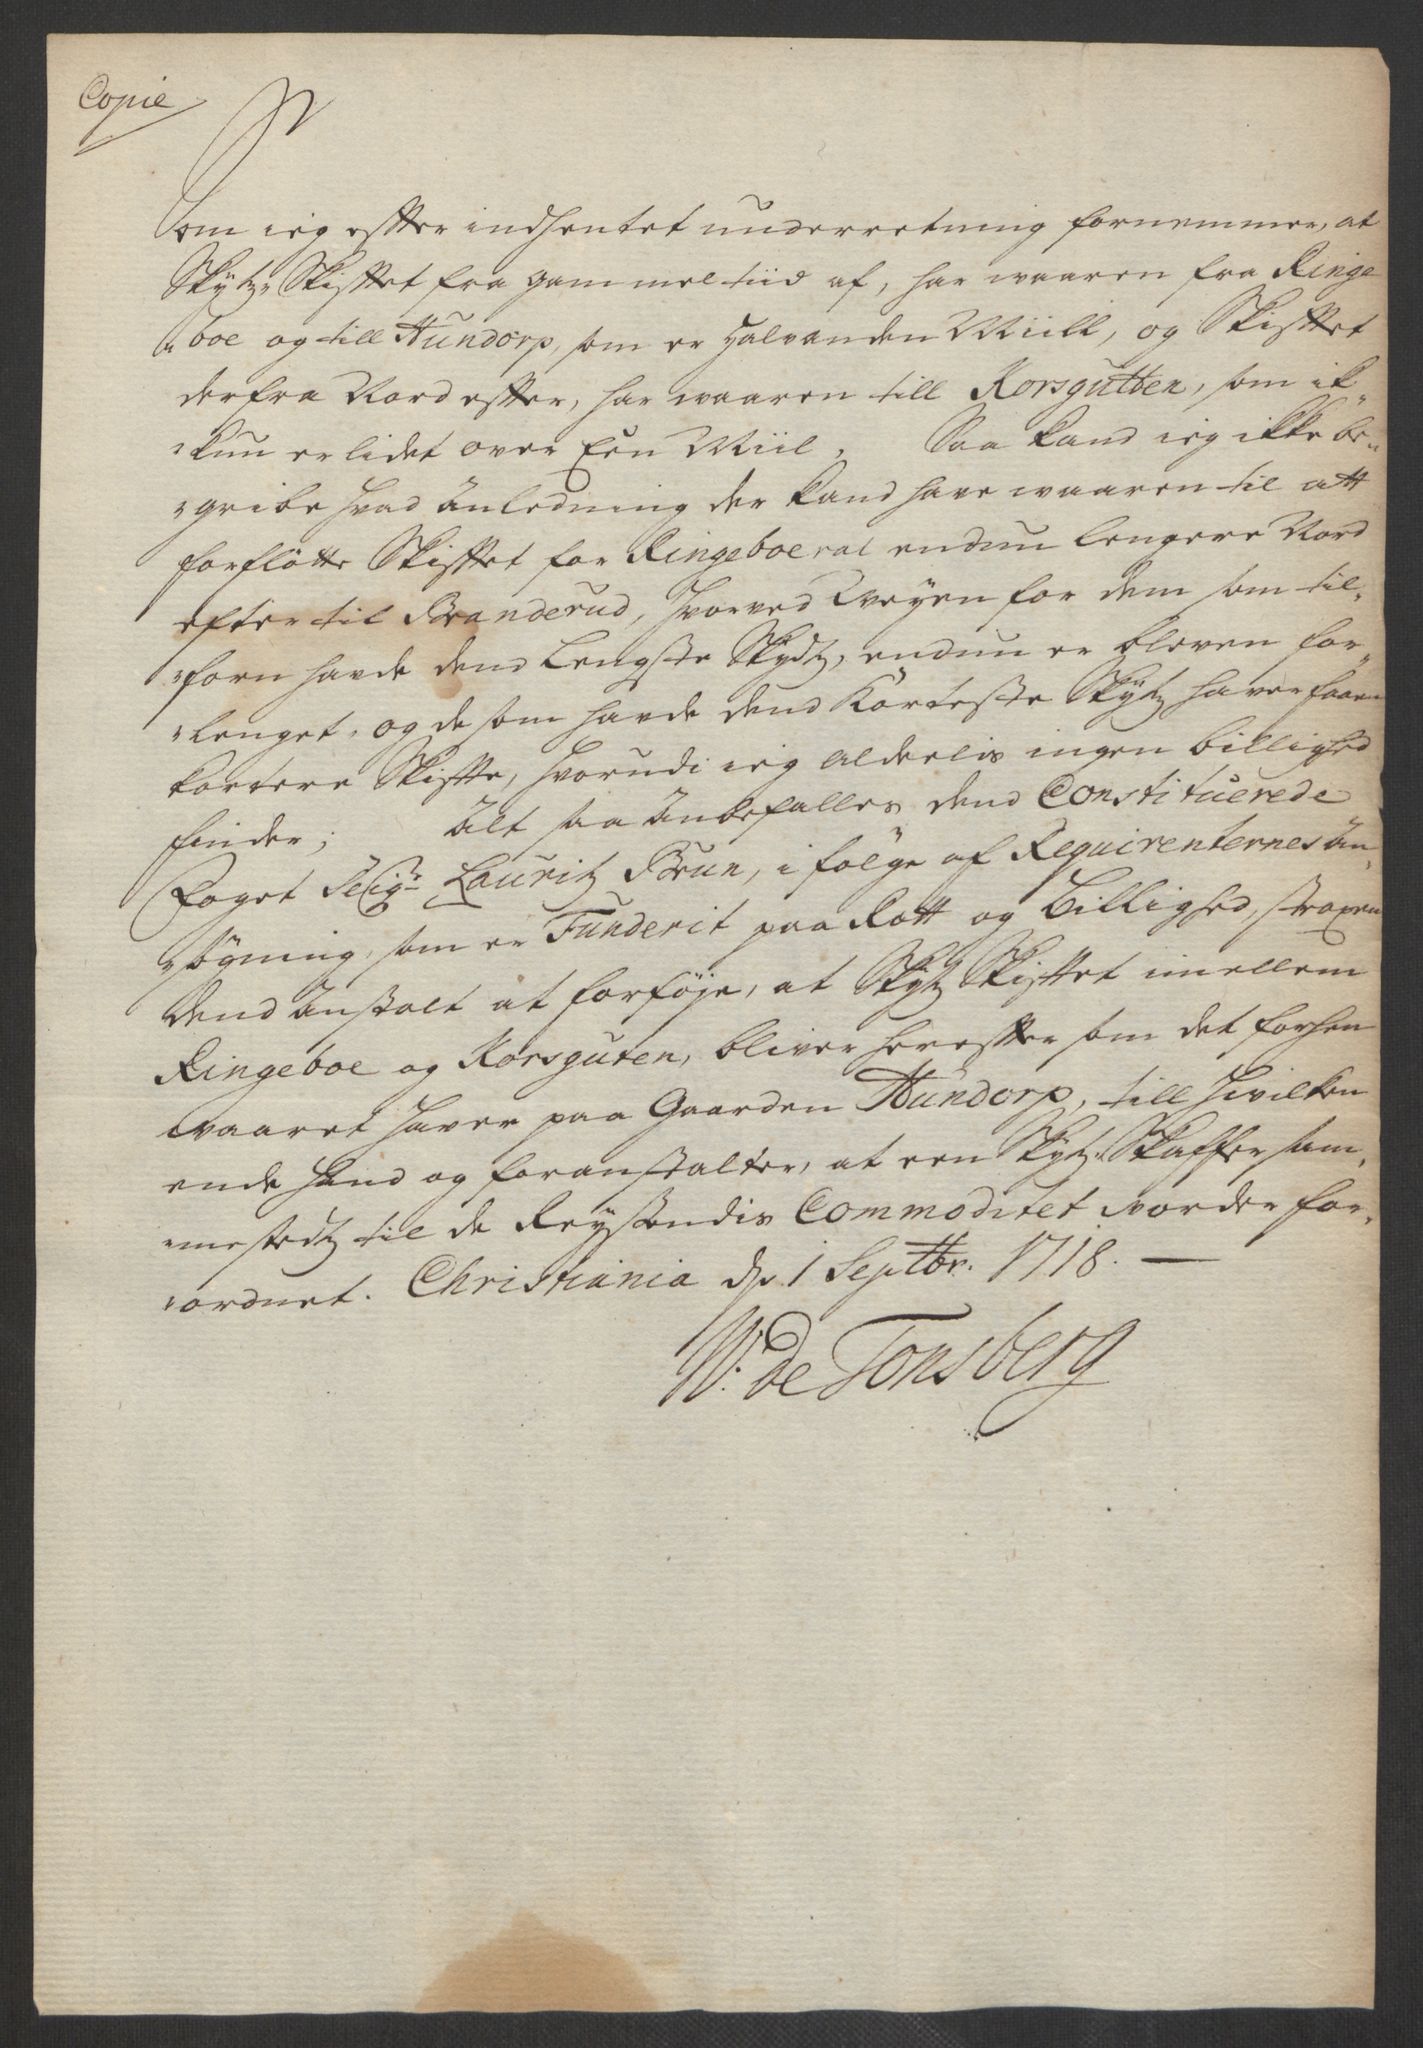 Copie
Som ieg effter indhentet underretning fornemmer, at
Skytz Skifftet fra gammel tiid af, har waaren fra Ringe
boe og till Hundorp, som er halvanden Miill, og Skifftet
derfra Nord effter, har waaren till Korsgutten, som ik
kun er lidet over Een Miil. Saa kand ieg ikke be-
gribe hvad Anledning der kand have waaren til att
forflötte Skifftet for Ringeboe ral endnu lengere Nord
efter til Branderud, hvorved Weyen for dem som til-
forn havde dend Lengste Skydtz, endnu er bleven for-
lenget, og de som havde dend Korteste Skytz haver faaen
kortere Skiffte, hvorudi ieg alderlis ingen billighed
finder; Alt saa Anbefalles dend Constituerede
Foget Seigr. Lauritz Brun, i fölge af Requirenternes An-
sögning, som er Funderit paa Rett og Billighed, straxen
dend Anstalt at forföje, at Skytz Skifftet imellem
Ringeboe og Korsguten, bliver hereffter som det forhen
waaret haver paa Gaarden Hundorp, till hvilken
ende hand og foranstalter, at een Skytz Skaffer sam-
mestedtz til de Reysendis Commoditet vorder for-
ordnet. Christiania dn 1 Septbr. 1718.
W: de Tonsberg